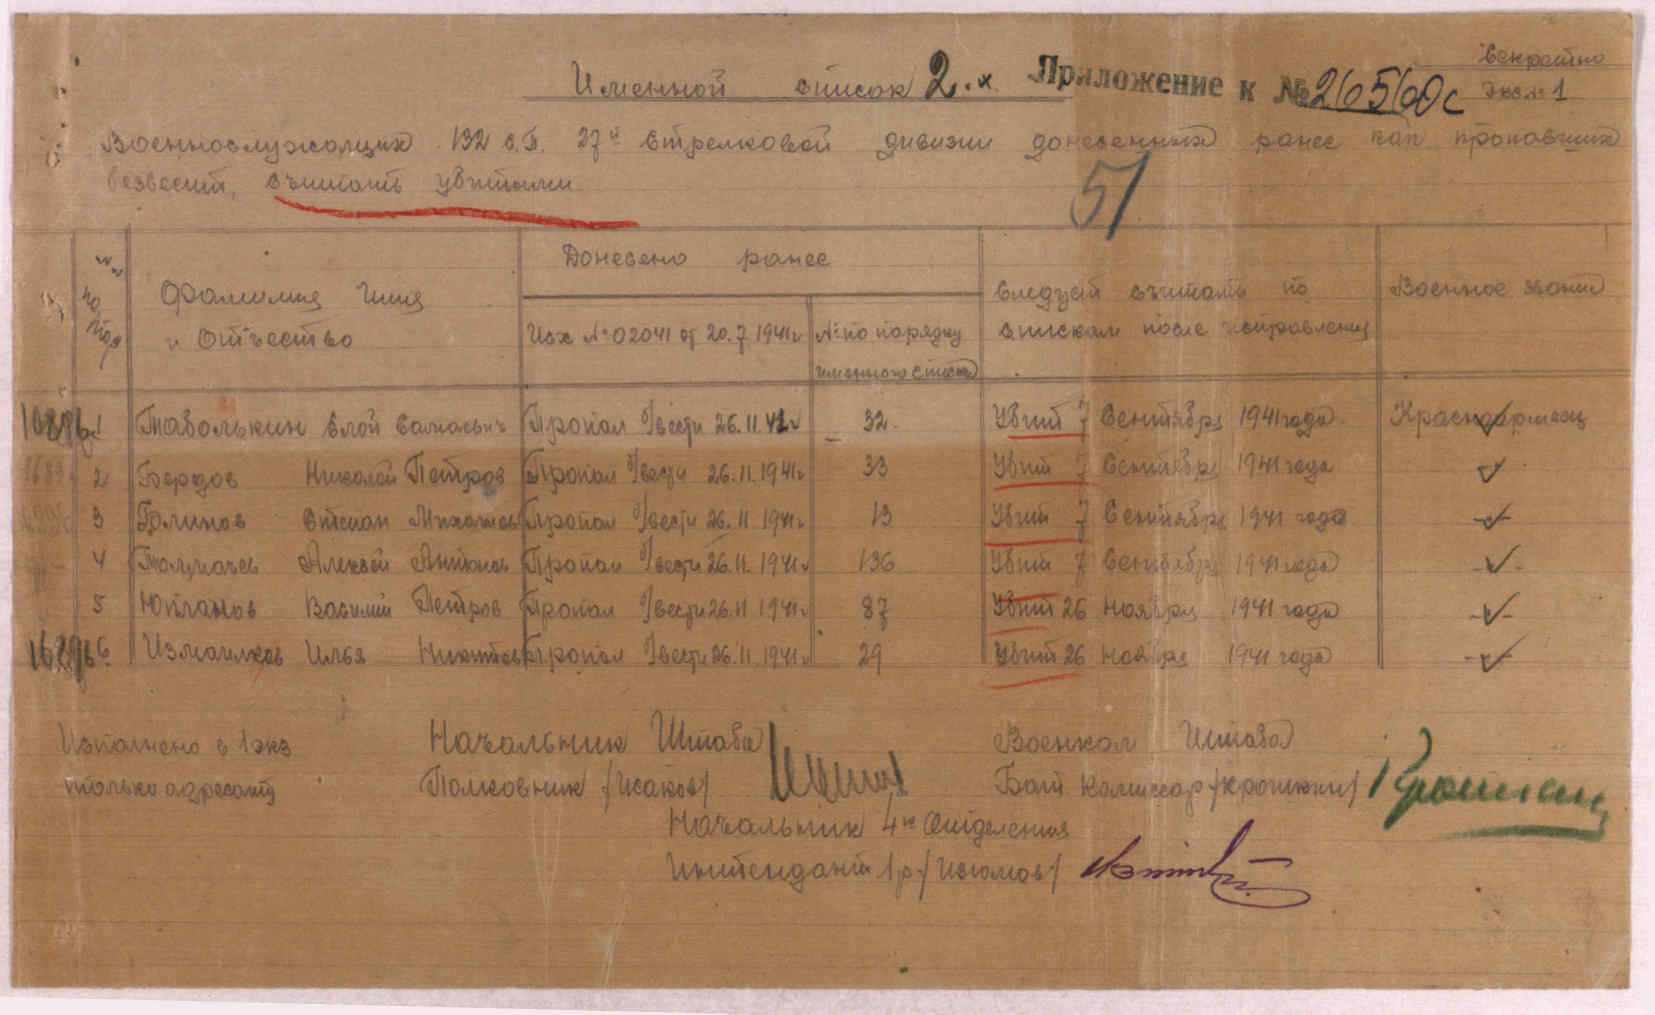 Секретно
Именной список 2.х Приложение к № 26560с Экз. № 1
Военнослужащих 132 с.п. 27й стрелковой дивизии донесенных ранее как пропавших
безвести, считать убитыми
51
№№ по пор Фамилия Имя и Отчество Донесено ранее Следует считать по спискам после исправления Военное звание
Исх № 02041 от 20.7 1941г № по порядку именного списка
1 Таволькин Сал Пропал б/вести 26.11.41г 32 Убит 7 Сентября 1941 года Красноармеец
2 Бердов Николай Петров Пропал б/вести 26.11.1941г 33 Убит 7 Сентября 1941 года
3 Блинов Степан Михайлов Пропал б/вести 26.11 1941г 13 Убит 7 Сентября 1941 года
4 Толмачев Алексей Антонов Пропал б/вести 26.11.1941г 136 Убит 7 Сентября 1941 года
5 Юпланов Василий Петров Пропал б/вести 26.11 1941г 87 Убит 26 Ноября 1941 года
6 Измаилков Илья Никитов Пропал б/вести 26.11.1941г 29 Убит 26 Ноября 1941 года
Исполнено в 1 экз Начальник Штаба Военком Штаба
только адресату Полковник /Исаков/ Бат Комиссар /Крошкин/
Начальник 4го Отделения
Интендант 1 р. /Изюмов/